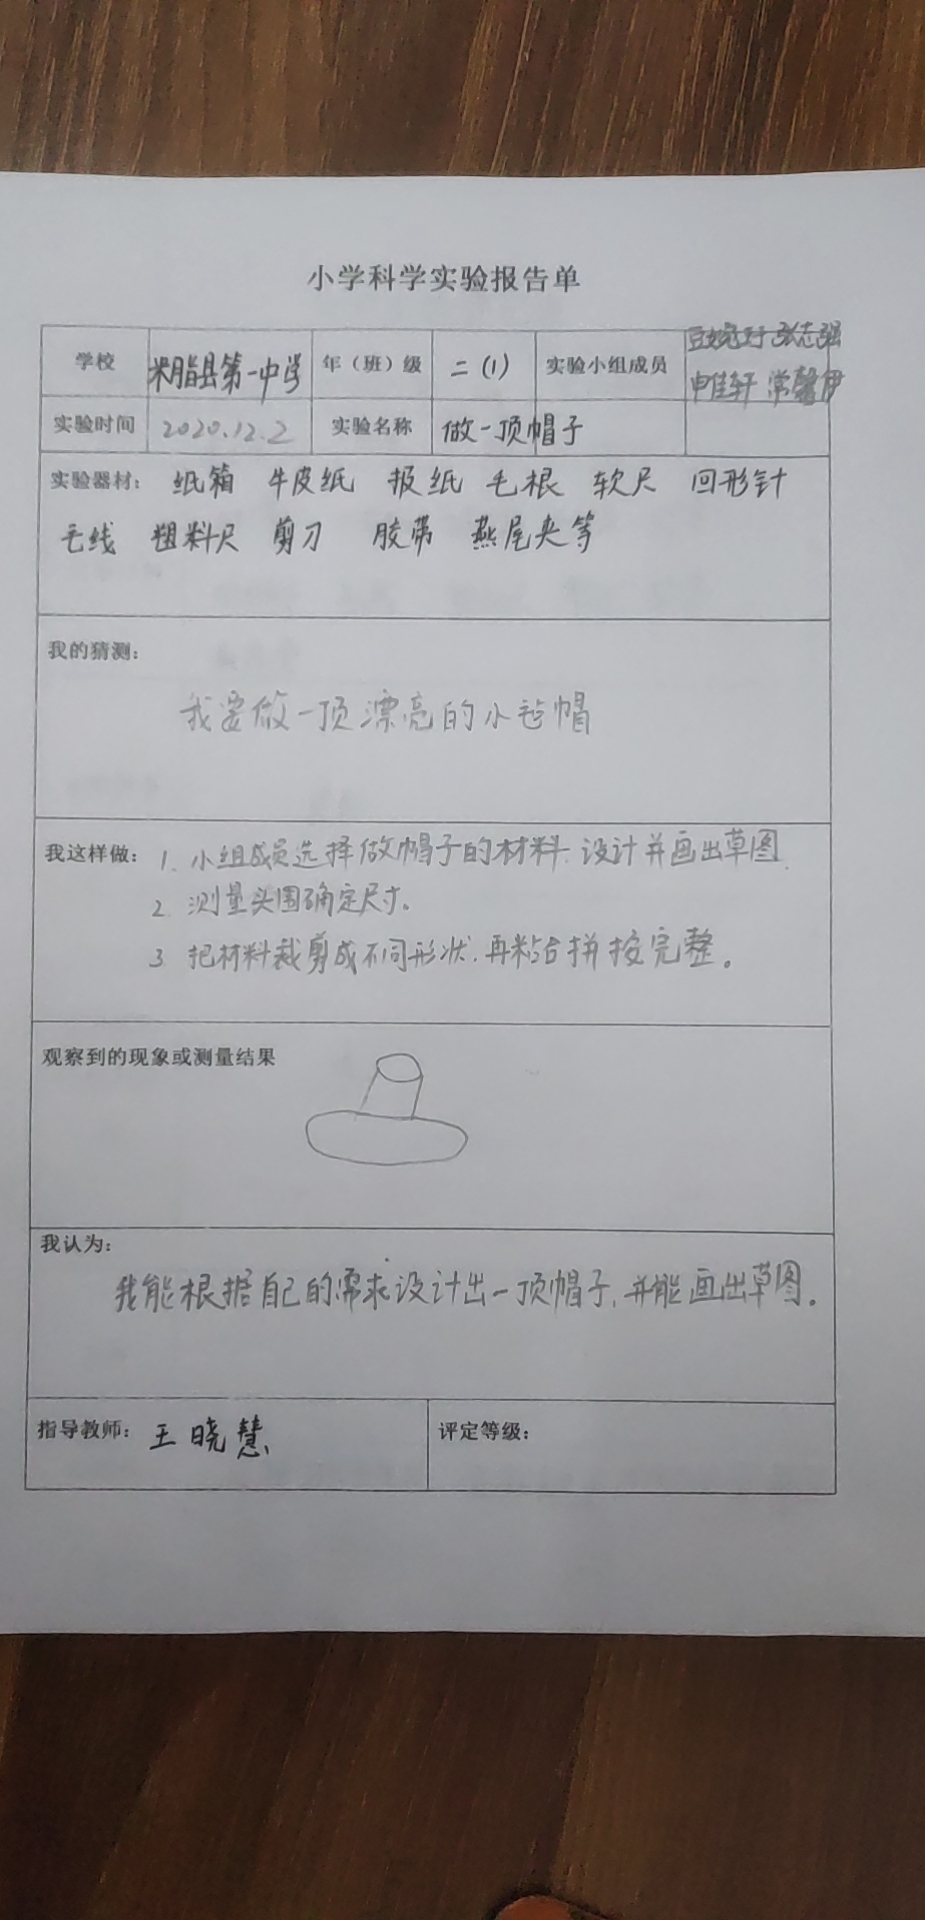 小学科学实验报告单
学校 米脂县第一中学 年（班）级 二（1） 实验小组成员 张志强
申佳轩 常馨伊
实验时间 2020.12.2 实验名称 做一顶帽子
实验器材： 纸箱 牛皮纸 报纸 毛根 软尺 回形针
毛线 塑料尺 剪刀 胶带 燕尾夹等
我的猜测：
我要做一顶漂亮的小毡帽
我这样做： 1. 小组成员选择做帽子的材料.设计并画出草图.
2. 测量头围确定尺寸。
3. 把材料裁剪成不同形状.再粘合拼接完整。
观察到的现象或测量结果
我认为：
我能根据自己的需求设计出一顶帽子.并能画出草图。
指导教师： 王晓慧 评定等级：